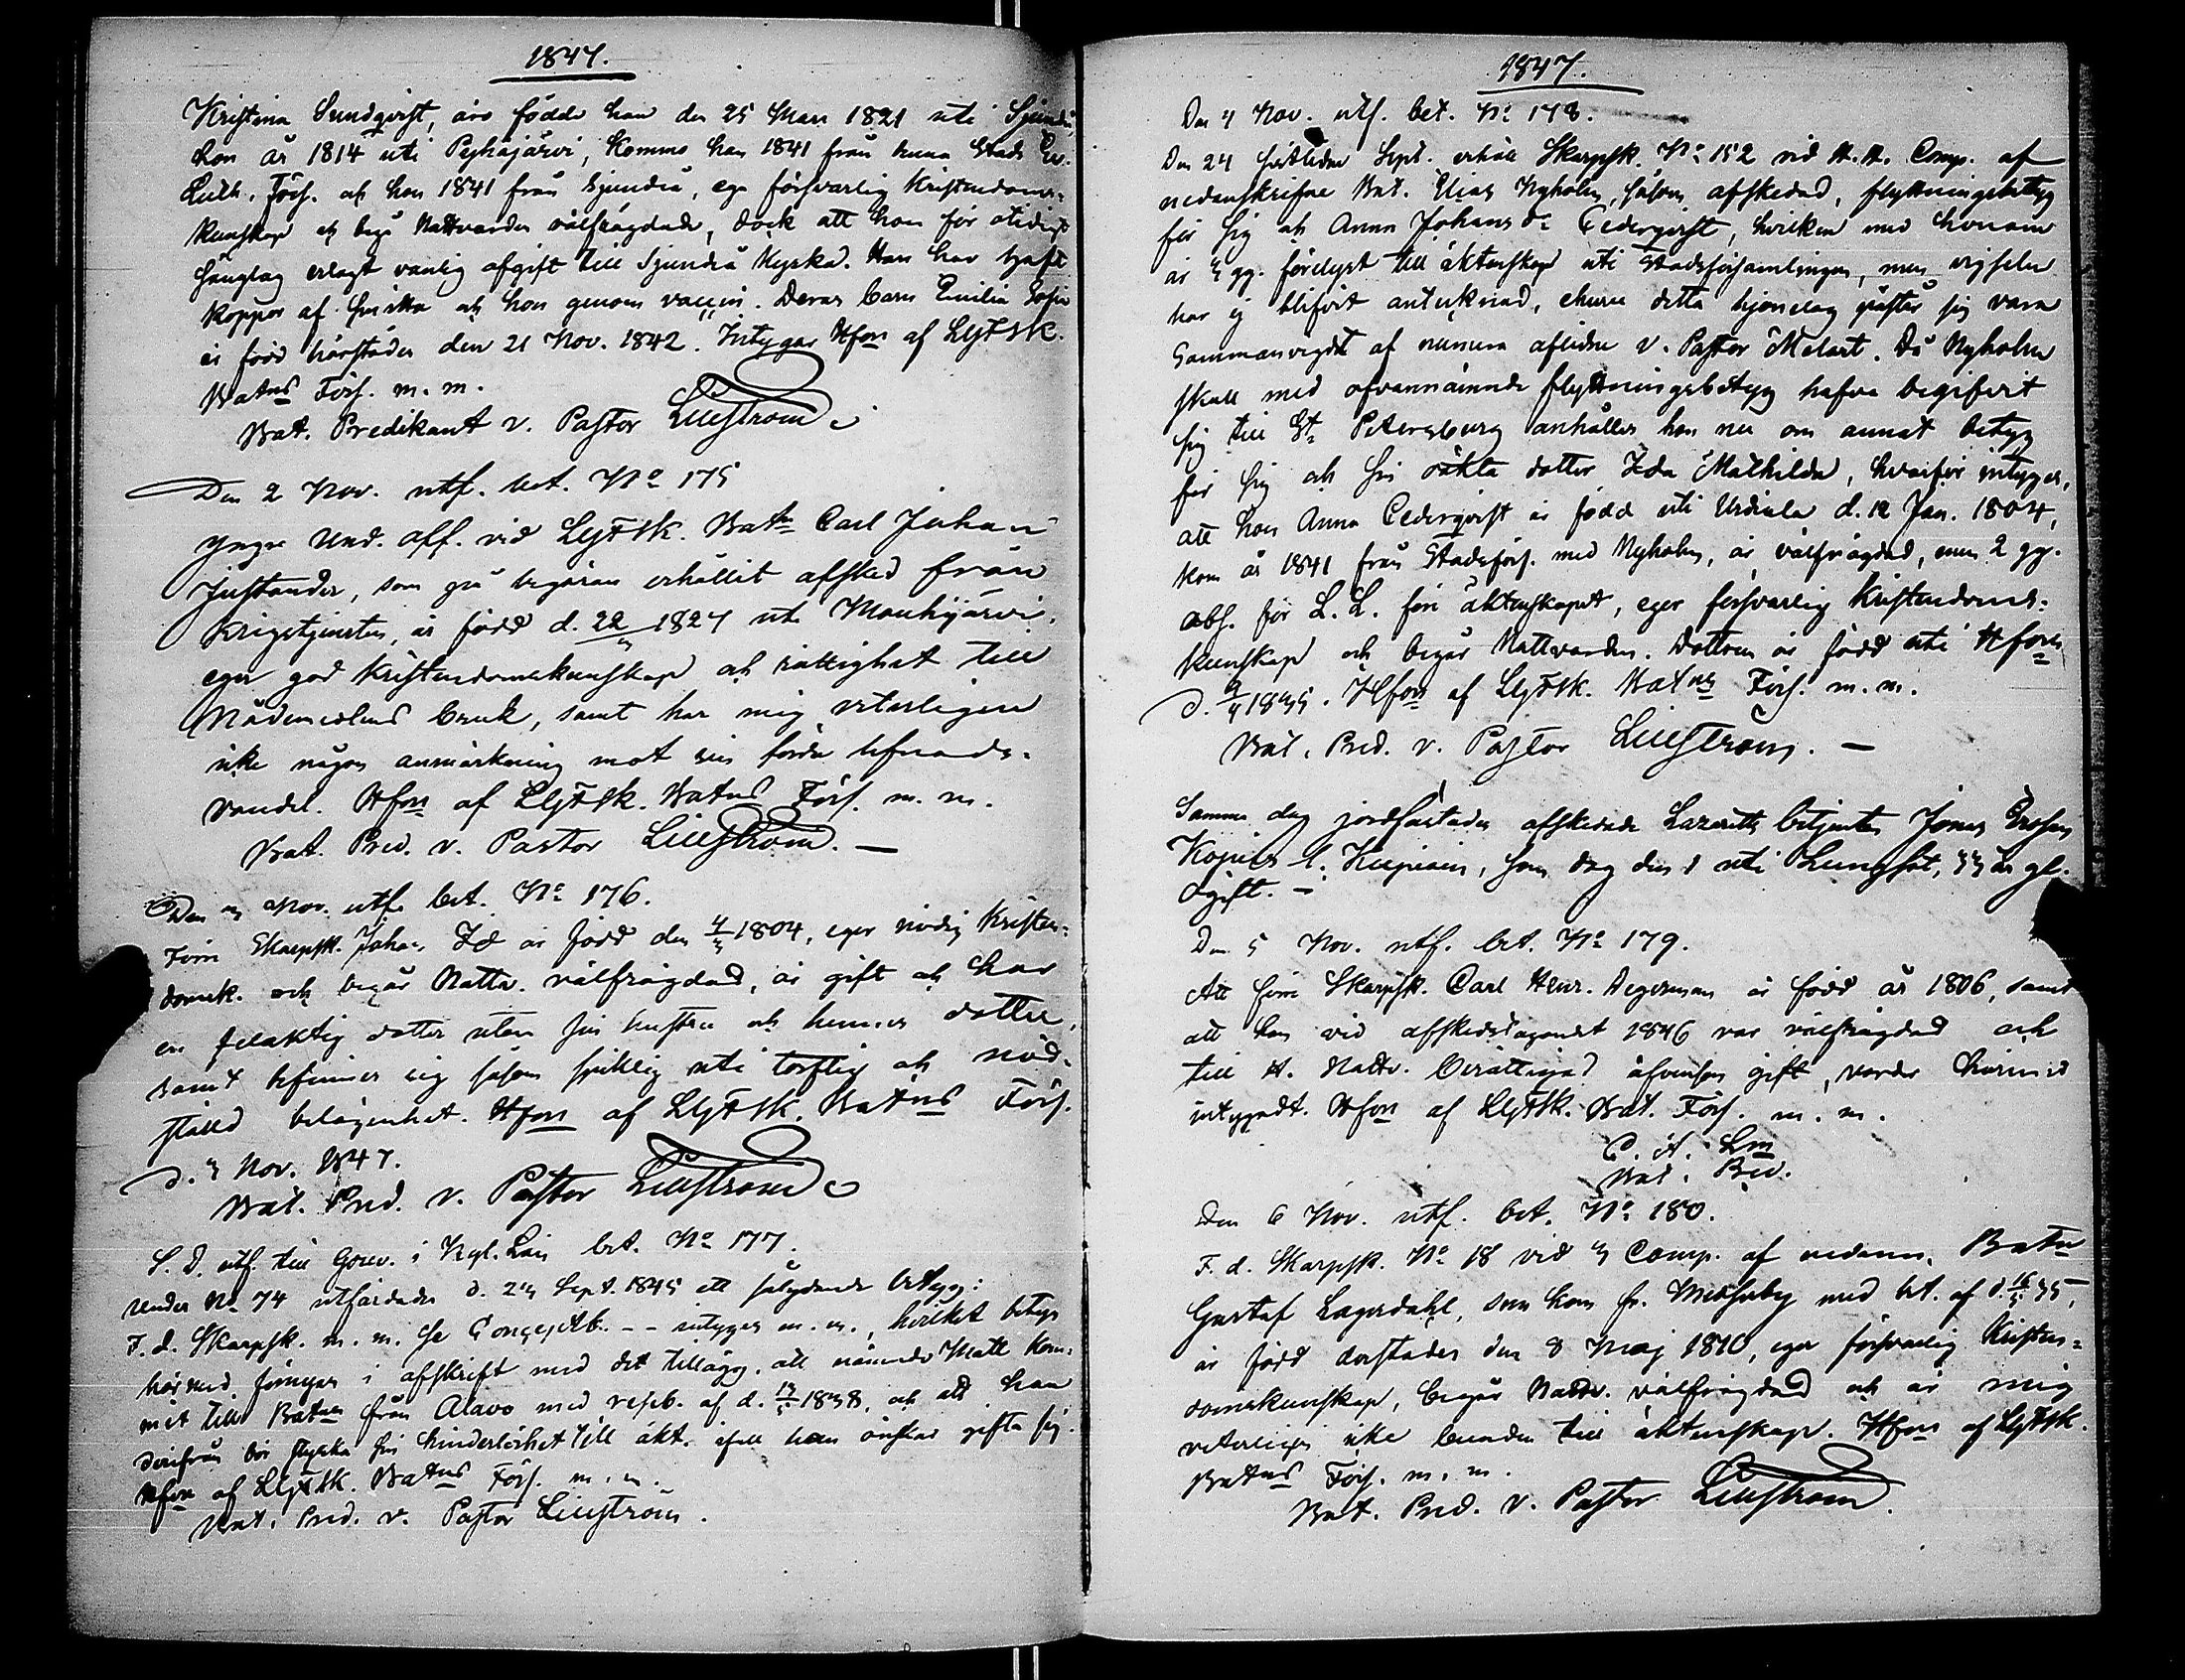 1847.
Kristina Sundqvist, äro födde han den 25 Mars 1821 uti Sjundeå,
hon år 1814 uti Pyhäjärvi, komne han 1841 från Stads Ev.
Luth. Förs. och hon 1841 från Sjundeå, ega försvarlig Kristendoms-
kunskap och begå Nattvarden välfrägdade, dock att hon för otidigt
sänglag erlagt vanlig afgift till Sjundeå Kyrka. Han har haft
koppor af smitta och hon genom vaccin. Deras barn Emilia Sofia
är född härstädes den 21 Nov. 1842. Intygar Hfors af LlgFSk.
Batns Förs. m. m.
Bat. Predikant v. Pastor Lillström
Den 2 Nov. utf. bet. No 175
Yngre Und. off. vid LlgFSk. Batn Carl Johan
Justander, som på begäran erhållit afsked från
Krigstjensten, är född d. 22 1827 uti Mouhijärvi.
eger god Kristendomskunskap och rättighet till
Nådemedlens bruk, samt har mig veterligen
icke någon anmärkning mot sin förda lefnads-
vandel. Hfors af LlgFSk. Batns Förs. m. m.
Bat. Pred. v. Pastor Lillström. —
Den 3 Nov. utf. bet. No 176.
Förre Skarpsk. Johan Id är född den 4/3 1804, eger nödig Kristen-
domsk. och begår Nattv. välfrägdad, är gift och har
en felaktig dotter utom sin hustru och hennes dotter,
samt befinner sig såsom sjuklig uti torftig och nöd-
ställd belägenhet. Hfors af LlgFSk. Batns Förs.
d. 3 Nov. 1847.
Bat. Pred. v. Pastor Lillström
S. D. utf. till Gouv. i Kyl. Län bet. No 177.
Under No 74 utfärdades d. 23 Sept. 1845 ett sålydande betyg:
F. d. Skarpsk. m. m. se Conceptb. -- intygas m. m., hvilket betyg
härmed förnyas i afskrift med det tillägg, att nämnde Matts kom-
mit till Batn från Alavo med respb. af d. 13/5 1838, och att han
derifrån bör styrka sin hinderlöshet till äkt. ifall han önskar gifta sig.
Hfors af LlgFSk. Batns Förs. m. m.
Bat. Pred. v. Pastor Lillström.
1847.
Den 4 Nov. utf. bet. No 178.
Den 24 sistlidne Sept. erhöll Skarpsk. No 152 vid Comp. af
nedanskrifne Bat. Elias Nyholm, såsom afskedad, flyttningsbetyg
för sig och Anna Johans Dr Cederqvist, hvilken med honom
är 3 gg. förelyst till äktenskap uti Stadsförsamlingen, men vigseln
har ej blifvit antecknad, ehuru detta hjonelag påstår sig vara
Sammanvigdt af numera aflidne v. Pastor Melart. Då Nyholm
skall med ofvannämnde flyttningsbetyg hafva begifvit
sig till St. Petersburg anhåller hon nu om annat betyg
för sig och sin oäkta dotter Ida Mathilda, hvarför intygas,
att hon Anna Cederqvist är född uti Urdiala d. 12 Jan. 1804,
kom år 1841 från Stadsförs. med Nyholm, är välfrägdad, men 2 gg.
abs. för L. L. före äktenskapet, eger försvarlig Kristendoms-
kunskap och begår Nattvarden. Dottren är född uti Hfors
d. 9/4 1835. Hfors af LlgFSk. Batns Förs. m. m.
Bat. Pred. v. Pastor Lillström. —
Samma dag jordfästades afskedade Lazaretts betjenten Jonas
Kopins l. Kupiain, som dog den 1 uti Lungsot, 33 år gl.
Ogift. —
Den 5 Nov. utf. bet. No 179.
Att förre Skarpsk. Carl Henr. Degerman är född år 1806, samt
att han vid afskedstagandet 1846 var välfrägdad och
till H. Nattv. berättigad äfvensom gift, varder härmed
intygadt. Hfors af LlgFSk. Bat. Förs. m. m.
C. A. Lm
Bat. Pred.
Den 6 Nov. utf. bet. No 180.
F. d. Skarpsk. No 18 vid 3 Comp. af nedann. Batn
Gustaf Lagerdahl, som kom fr. med bet. af d. 16/5 35,
är född derstädes den 8 Maj 1810, eger försvarlig Kristen-
domskunskap, begår Nattv. välfrägdad och är mig
veterligen icke bunden till äktenskap. Hfors af LlgFSk.
Batns Förs. m. m.
Bat. Pred. v. Pastor Lillström.